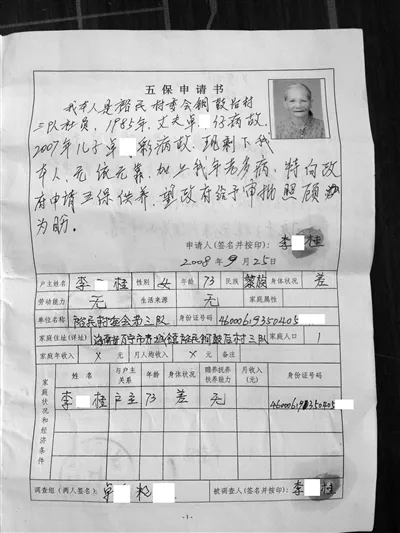 五保申请书
我本人是裕民村委会铜鼓后村
三队社员，1985年，丈夫卓 仔病故，
2007年儿子卓 彩病故，现剩下我
本人，无依无靠，加上我年老多病，特向政
府申请五保供养，望政府给予审批照顾
为盼。
申请人(签名并按印)：李 桂
2008年9月25日
户主姓名 李 桂 性别 女 年龄 73 民族 黎族 身体状况 差
劳动能力 无 生活来源 无 家庭属性
单位名称 裕民村委会 三队 身份证号码 46000619350405
家庭住址(详址) 海南省万宁市 裕民铜鼓后村三队 家庭人口 1
家庭年收入 X 元 月人均收入 X 元 备注
家庭状况和经济条件
姓名 与户主关系 年龄 身体状况 赡养抚养扶养能力 月收入(元) 身份证号码
李 桂 户主 73 差 无 46000619350405
调查组(两人签名)：卓 被调查人(签名并按印)：李 桂
-1-